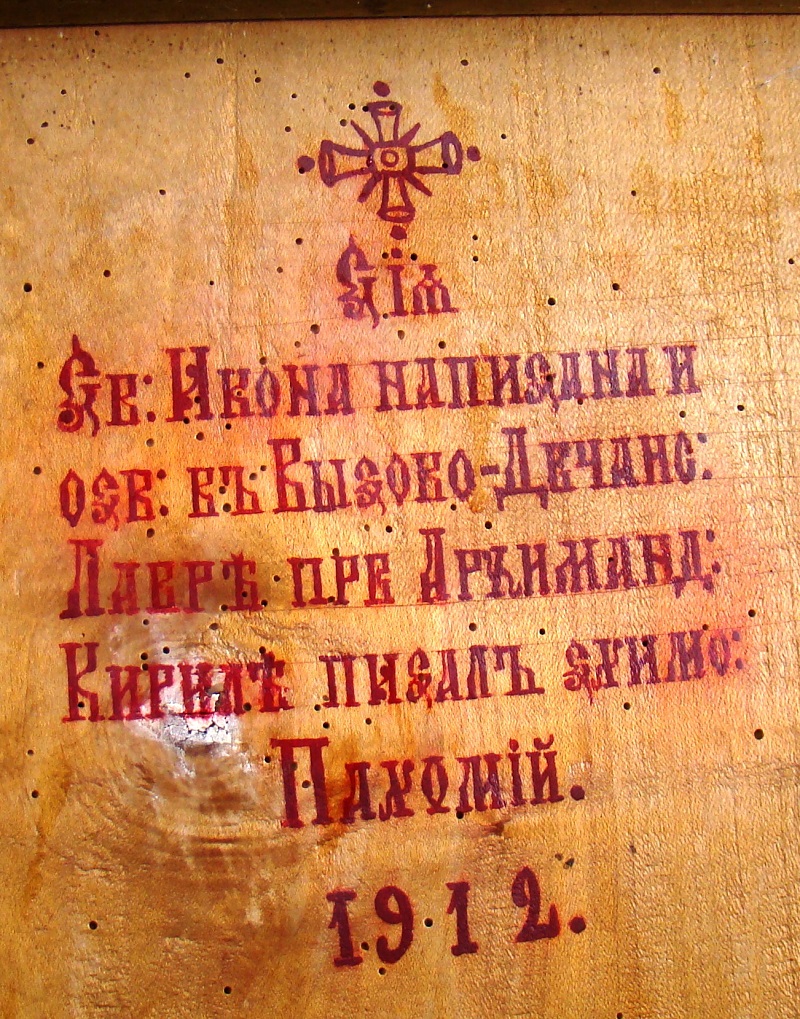 Сіѧ
Св: Икона написана и
осв: въ Высово-Дечанс:
Лаврѣ пре Архиманд:
Кирилѣ писалъ схимо:
Пахомій.
1912.